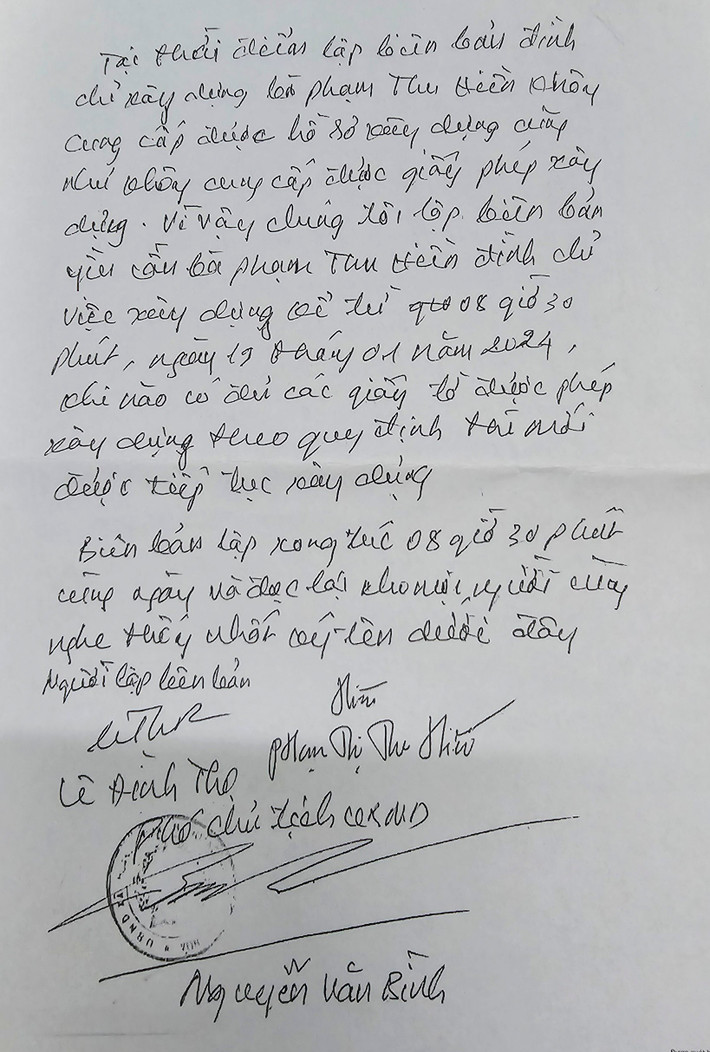 Tại thời điểm lập biên bản đình
chỉ xây dựng bà phạm Thu Hiền không
cung cấp được hồ sơ xây dựng cũng
như không cung cấp được giấy phép xây
dựng. Vì vậy chúng tôi lập biên bản
yêu cầu bà phạm Thu Hiền đình chỉ
việc xây dựng kể từ 08 giờ 30
phút, ngày 19 tháng 01 năm 2024,
khi nào có đủ các giấy tờ được phép
xây dựng theo quy định thì mới
được tiếp tục xây dựng
Biên bản lập xong lúc 08 giờ 30 phút
cùng ngày và đọc lại cho mọi người cùng
nghe thống nhất ký tên dưới đây
Người lập biên bản
Hiền
Phạm Thị Thu Hiền
Lê Đình Thọ
phó chủ tịch UBND
UBND XÃ
Nguyễn Văn Bình